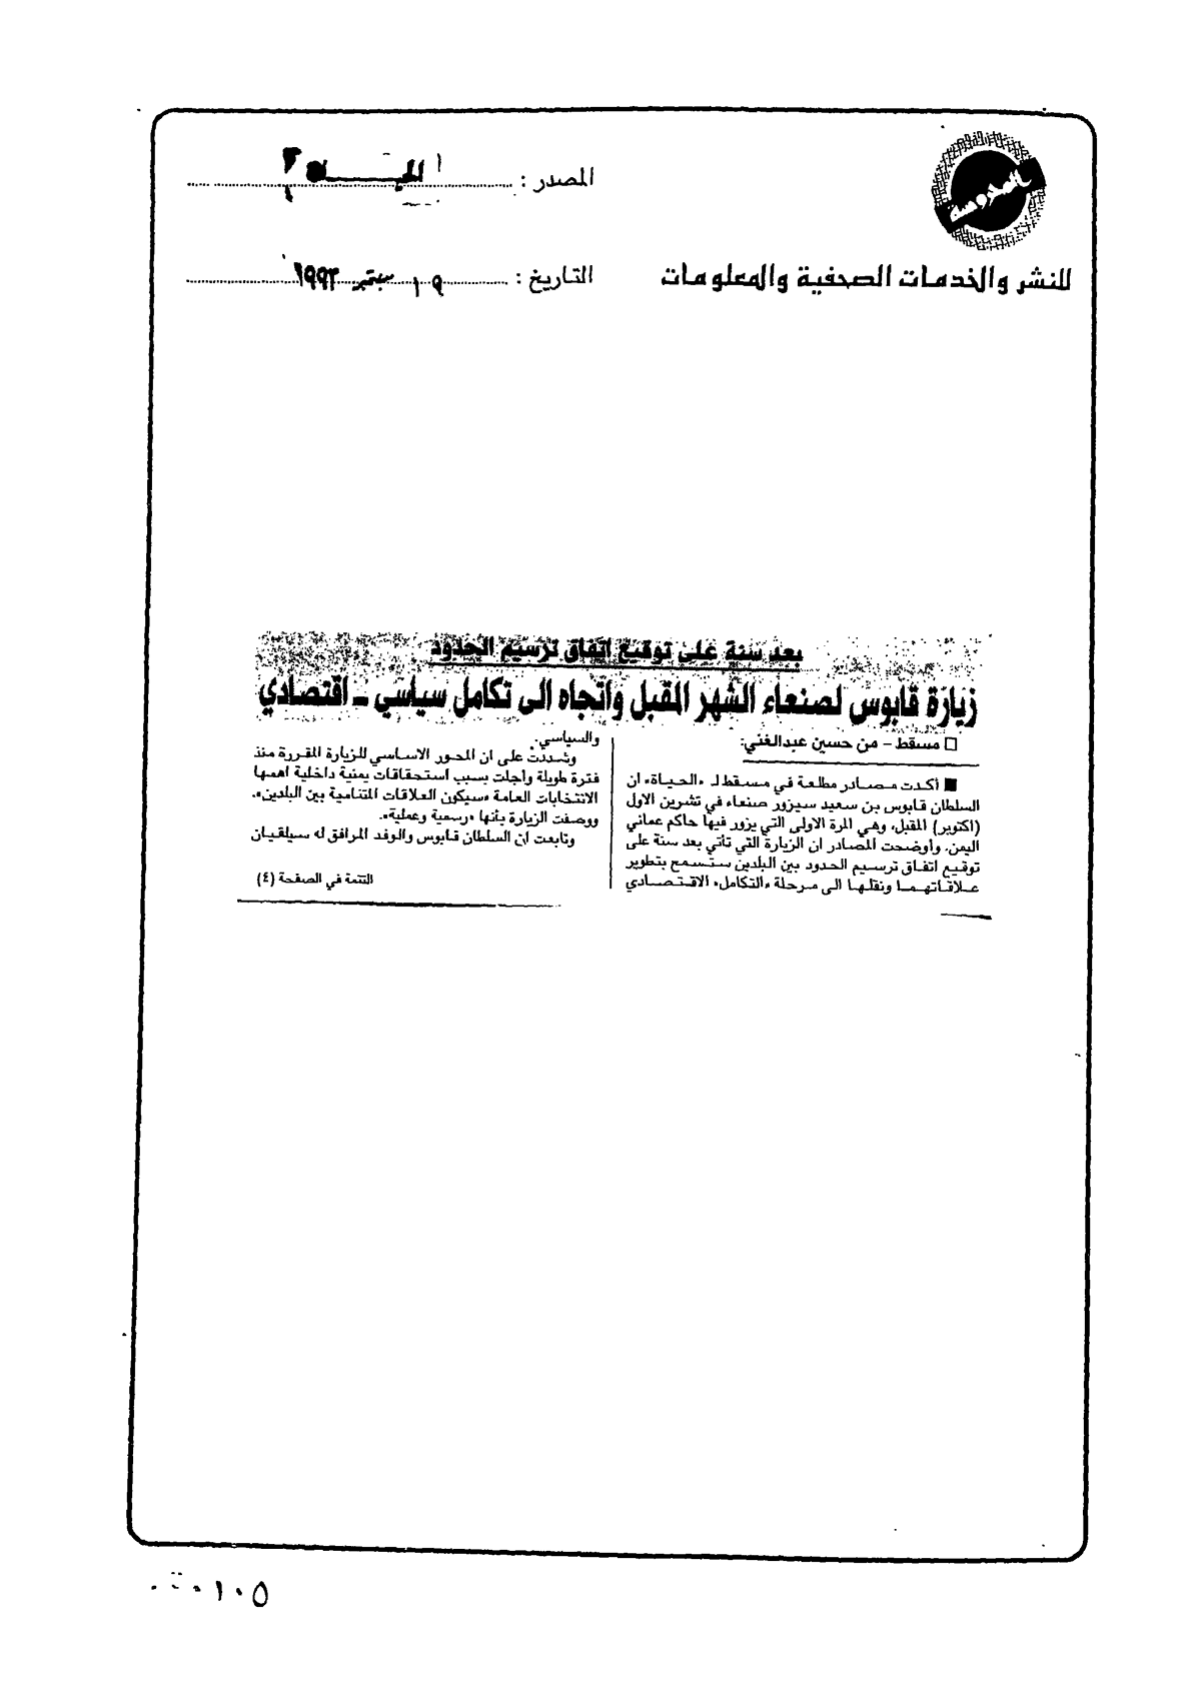 المحروسة
للنشر والخدمات الصحفية والمعلومات
المصدر :
التاريخ : ١٩ سبتمبر ١٩٩٣
بعد سنة على توقيع اتفاق ترسيم الحدود
زيارة قابوس لصنعاء الشهر المقبل واتجاه الى تكامل سياسي - اقتصادي
□ مسقط - من حسين عبدالغني:
■ أكدت مصادر مطلعة في مسقط لـ «الحياة» ان
السلطان قابوس بن سعيد سيزور صنعاء في تشرين الاول
(اكتوبر) المقبل، وهي المرة الاولى التي يزور فيها حاكم عماني
اليمن. وأوضحت المصادر ان الزيارة التي تأتي بعد سنة على
توقيع اتفاق ترسيم الحدود بين البلدين ستسمح بتطوير
علاقاتهما ونقلها الى مرحلة «التكامل» الاقتصادي
والسياسي.
وشددت على ان المحور الاساسي للزيارة المقررة منذ
فترة طويلة وأجلت بسبب استحقاقات يمنية داخلية اهمها
الانتخابات العامة «سيكون العلاقات المتنامية بين البلدين».
ووصفت الزيارة بأنها «رسمية وعملية».
وتابعت ان السلطان قابوس والوفد المرافق له سيلقيان
التتمة في الصفحة (٤)